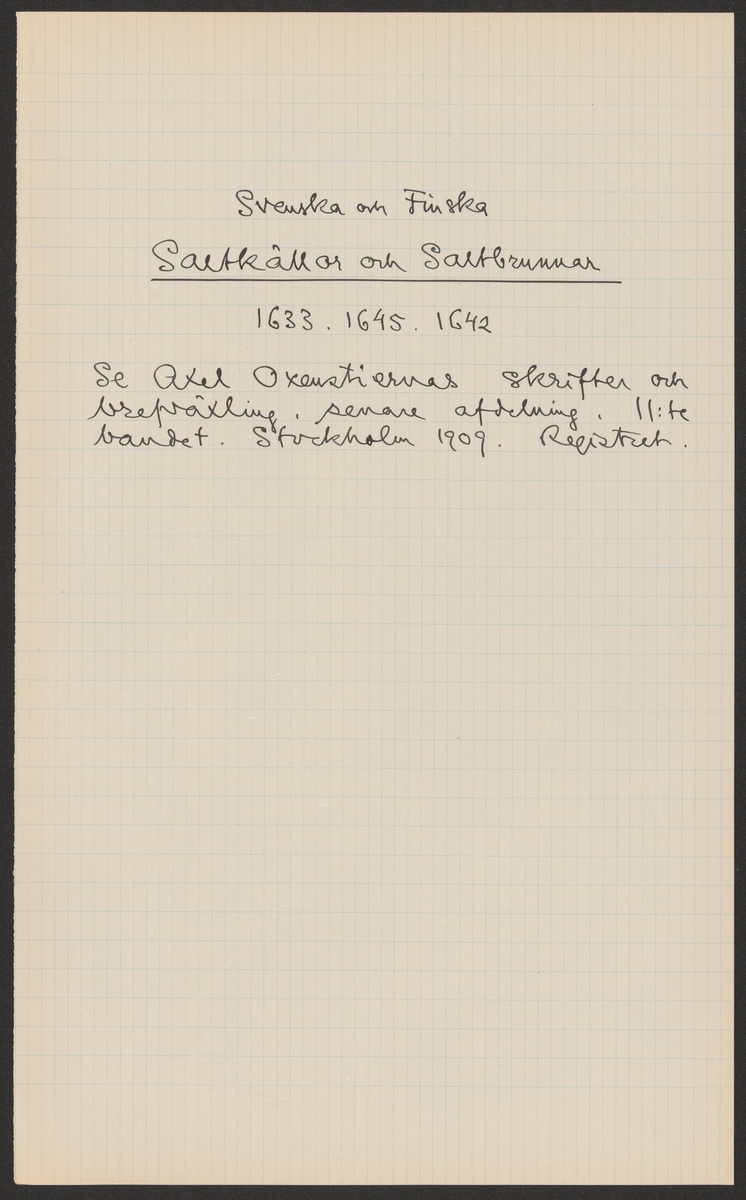 Svenska och Finska
Saltkällor och Saltbrunnar
1633. 1645. 1642
Se Axel Oxenstiernas skrifter och
brefväxling, senare afdelning, 11:te
bandet. Stockholm 1909. Registret.